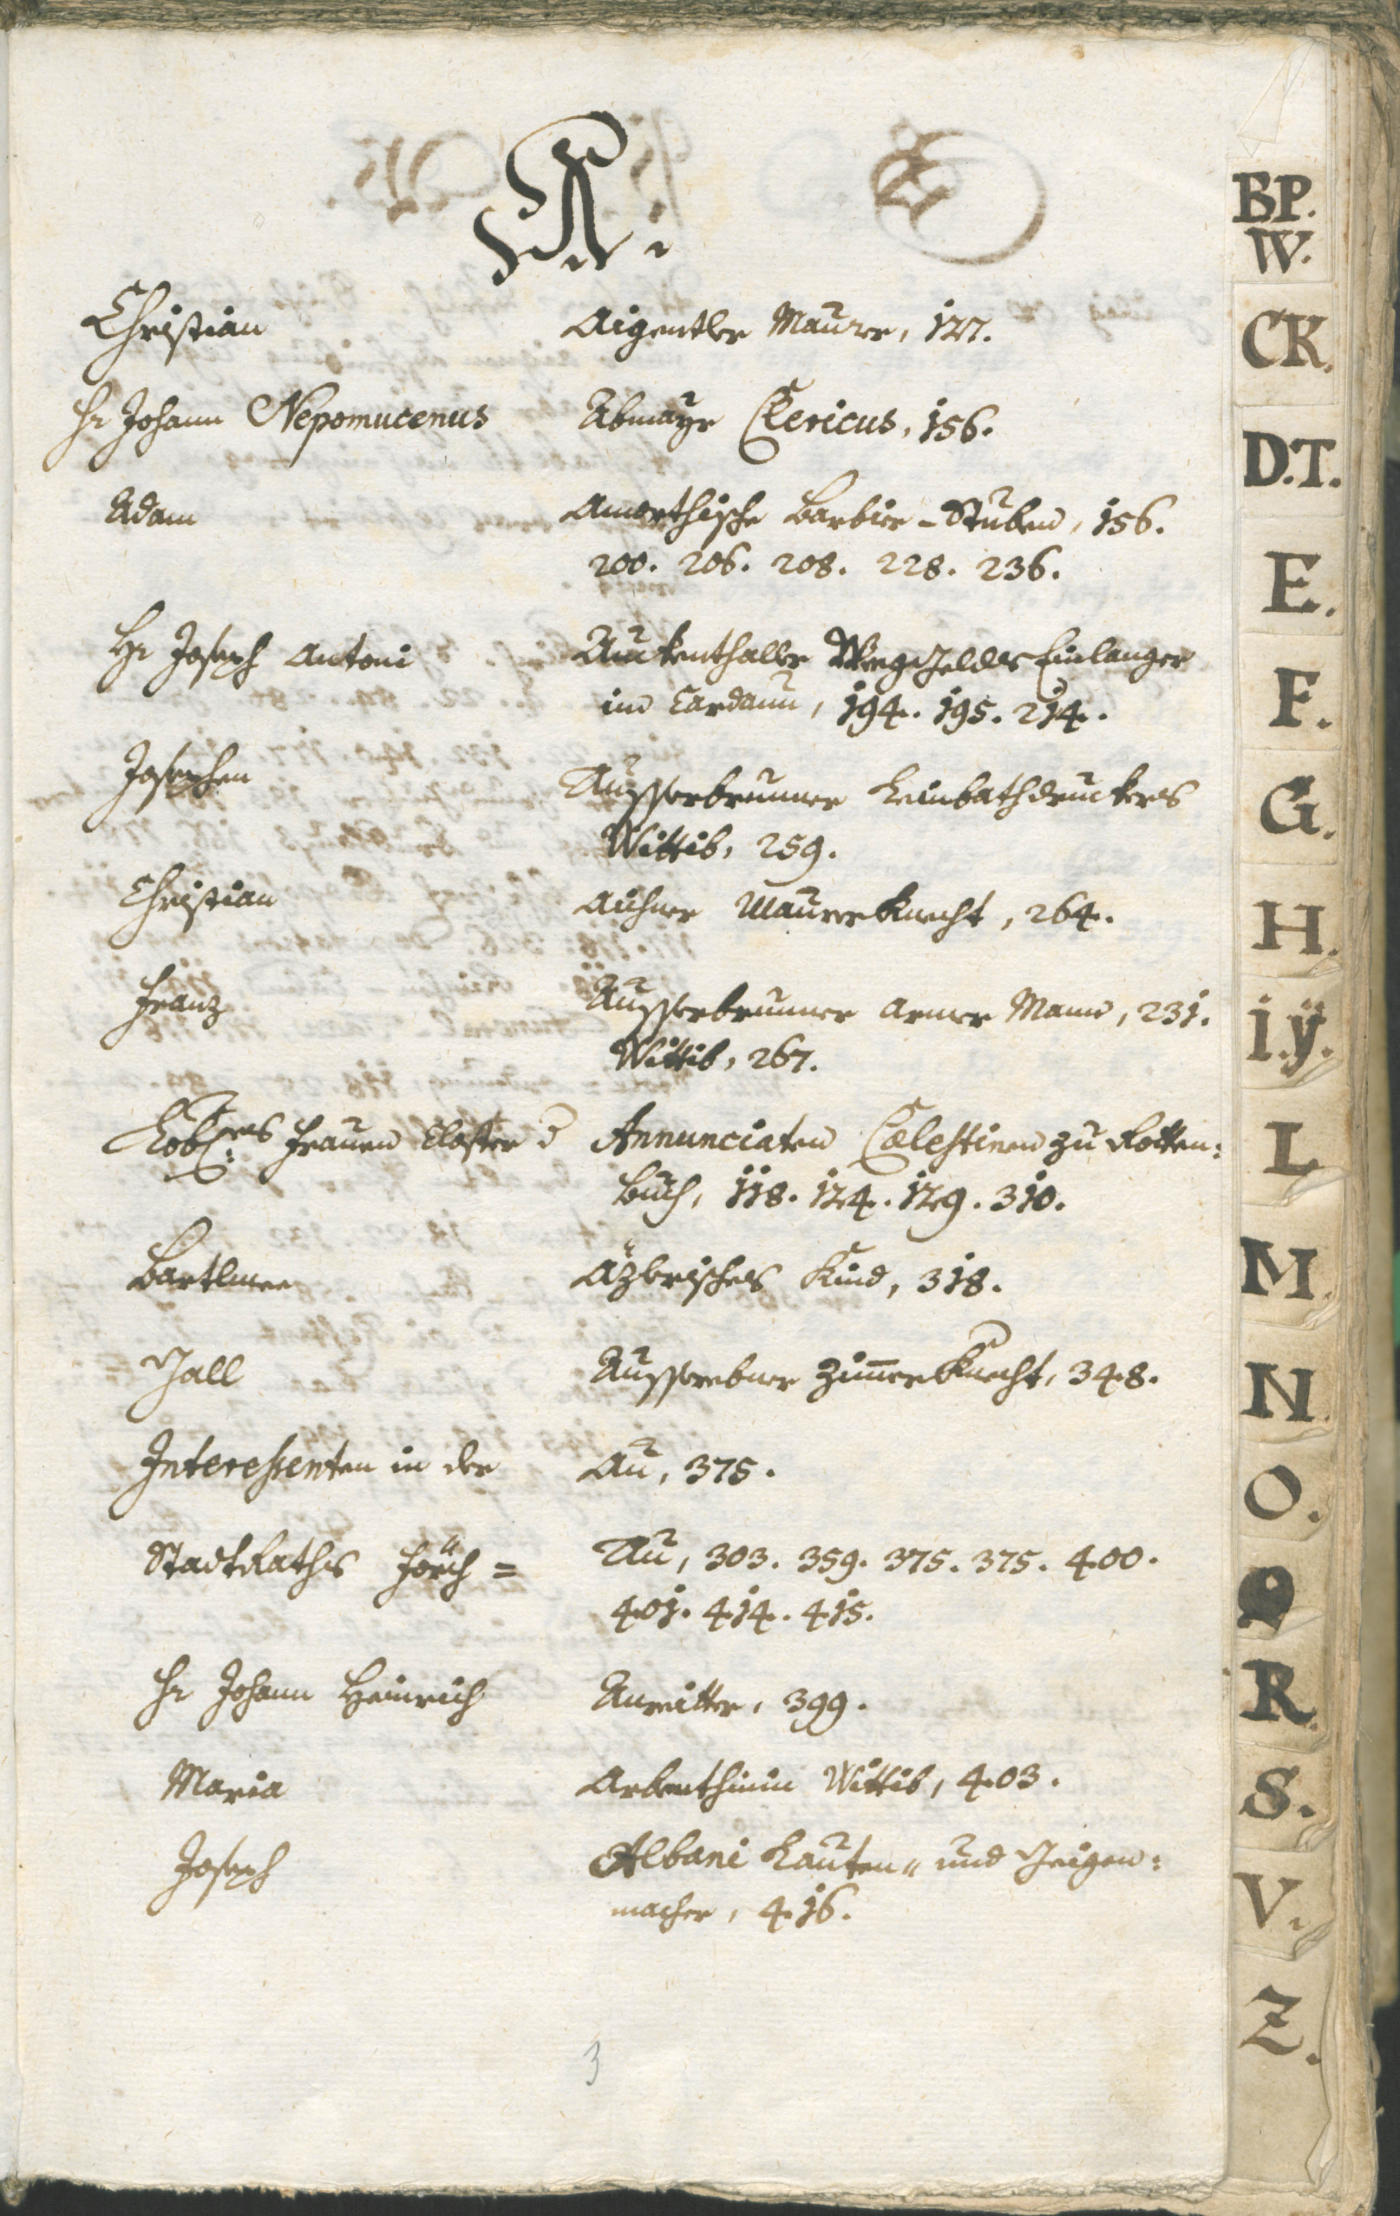 A.
Christian Aigentler Maurer, 127.
Hr Johann Nepomucenus Abmayr Clericus, 156.
Adam Amorthische Barbier-Stuben, 156.
200. 206. 208. 228. 236.
Hr Joseph Antoni Aukenthaller Weeggelds Einlanger
im Cardaun, 194. 195. 214.
Josephen Ausserbrunner Leinbathdruckers
Wittib, 259.
Christian Aichner Maurer Knecht, 264.
Franz Ausserbrunner armer Mann, 231.
Wittib, 267.
Frauen Closter Annunciaten Cælestinen zu Rotten:
buch, 118. 124. 129. 310.
Bartlmee Äzlerisches Kind, 318.
Gall Ausserebner Zimer Knecht, 348.
Interehsenten in der Au, 375.
StadtRaths Au, 303. 359. 375. 375. 400.
401. 414. 415.
Hr Johann Heinrich Anreitter, 399.
Maria Wittib, 403.
Joseph Albani Lauten- und Geigen:
macher, 416.
3
BP.
W.
CK.
D.T.
E.
F.
G.
H.
i.ÿ.
L
M.
N.
O.
Q
R.
S.
V.
Z.